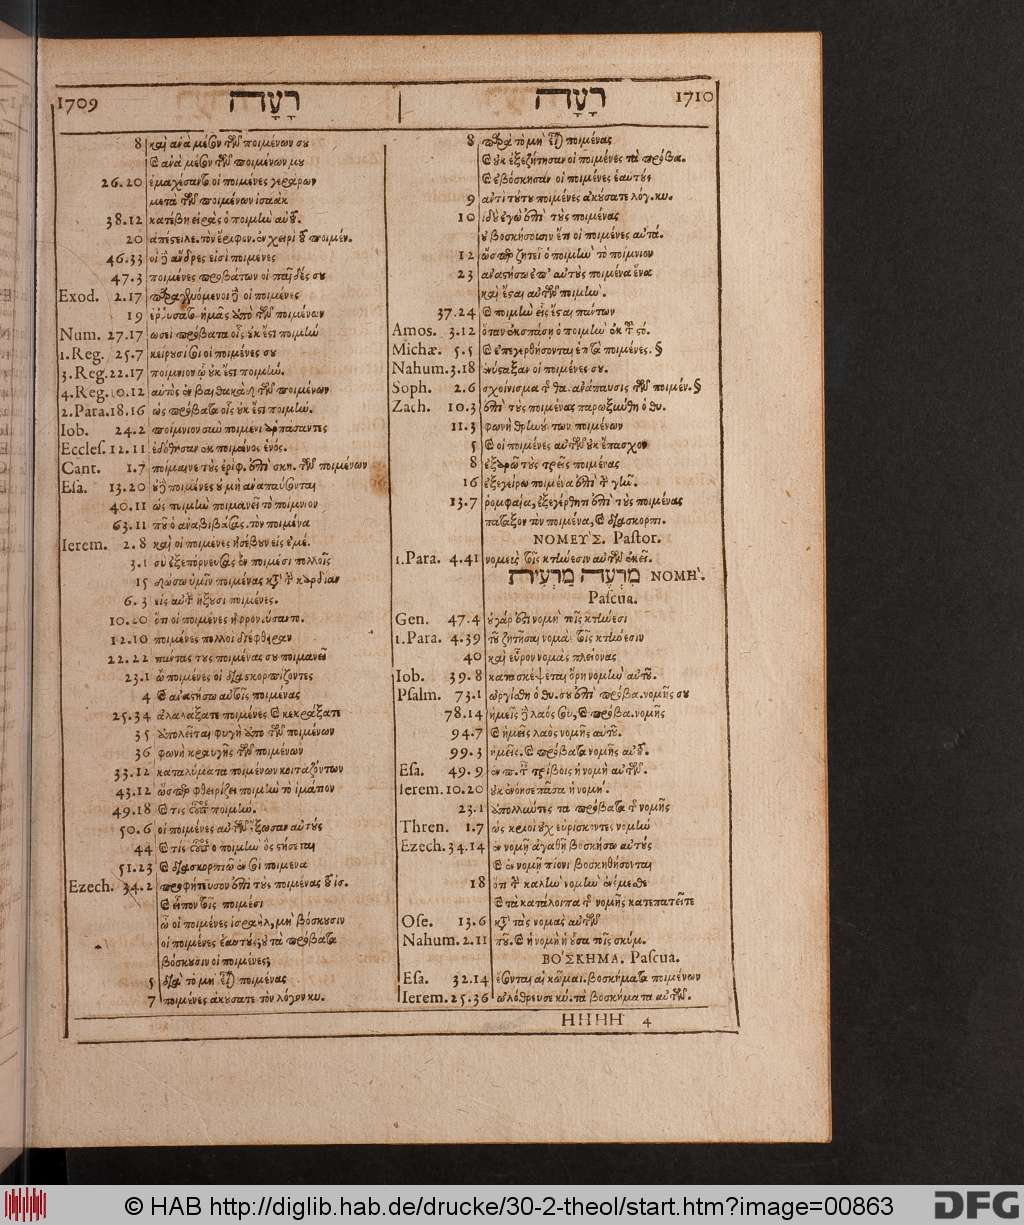 1709 רָעָה רָעָה 1710
8 καὶ ἀνὰ μέσον τῶν ποιμένων σου
καὶ ἀνὰ μέσον τῶν ποιμένων μου
26.20 ἐμαχέσαντο οἱ ποιμένες γεράρων
μετὰ τῶν ποιμένων ἰσαὰκ
38.12 κατέβη ὁ ποιμὴν αὐτοῦ.
20 ἀπέστειλε. τὸν ἔριφον. ἐν χειρὶ τοῦ ποιμέν.
46.33 οἱ δὲ ἄνδρες εἰσὶ ποιμένες
47.3 ποιμένες προβάτων οἱ παῖδές σου
Exod. 2.17 παραγενόμενοι δὲ οἱ ποιμένες
19 ἐρρύσατο ἡμᾶς ἀπὸ τῶν ποιμένων
Num. 27.17 ὡσεὶ πρόβατα οἷς οὐκ ἔστι ποιμὴν
1.Reg. 25.7 κείρουσί σοι οἱ ποιμένες σου
3.Reg. 22.17 ποίμνιον ᾧ οὐκ ἔστι ποιμὴν.
4.Reg. 10.12 αὐτὸς ἐν τῶν ποιμένων
2.Para. 18.16 ὡς πρόβατα οἷς οὐκ ἔστι ποιμὴν.
Iob. 24.2 ποίμνιον σὺν ποιμένι ἁρπάσαντες
Eccles. 12.11 ἐδόθησαν ἐκ ποιμένος ἑνός.
Cant. 1.7 ποίμαινε τὰς ἐρίφ. ἐπὶ σκη. τῶν ποιμένων
Esa. 13.20 οὐδὲ ποιμένες οὐ μὴ ἀναπαύσονται
40.11 ὡς ποιμὴν ποιμανεῖ τὸ ποίμνιον
63.11 ποῦ ὁ ἀναβιβάσας. τὸν ποιμένα
Ierem. 2.8 καὶ οἱ ποιμένες ἠσέβουν εἰς ἐμέ.
3.1 σὺ ἐξεπόρνευσας ἐν ποιμέσι πολλοῖς
15 δώσω ὑμῖν ποιμένας κατὰ τὴν καρδίαν
6.3 εἰς αὐτὴν ἥξουσι ποιμένες.
10.20 ὅτι οἱ ποιμένες ἠφρονεύσαντο.
12.10 ποιμένες πολλοὶ διέφθειραν
22.22 πάντας τοὺς ποιμένας σου ποιμανεῖ
23.1 ὦ ποιμένες οἱ διασκορπίζοντες
4 καὶ ἀναστήσω αὐτοῖς ποιμένας
25.34 ἀλαλάξατε ποιμένες καὶ κεκράξατε
35 ἀπολεῖται φυγὴ ἀπὸ τῶν ποιμένων
36 φωνὴ κραυγῆς τῶν ποιμένων
33.12 καταλύματα ποιμένων κοιταζόντων
43.12 ὥσπερ φθειρίζει ποιμὴν τὸ ἱμάτιον
49.18 καὶ τίς οὗτος ποιμὴν.
50.6 οἱ ποιμένες αὐτῶν ἔξωσαν αὐτούς
44 καὶ τίς οὗτος ὁ ποιμὴν ὃς στήσεται
51.23 καὶ διασκορπιῶ ἐν σοὶ ποιμένα
Ezech. 34.2 προφήτευσον ἐπὶ τοὺς ποιμένας τοῦ ἰσ.
καὶ εἶπον τοῖς ποιμέσι
ὦ οἱ ποιμένες ἰσραὴλ, μὴ βόσκουσιν
οἱ ποιμένες ἑαυτούς; οὐ τὰ πρόβατα
βόσκουσιν οἱ ποιμένες;
5 διὰ τὸ μὴ εἶναι ποιμένας
7 ποιμένες ἀκούσατε τὸν λόγον κυ.
8 παρὰ τὸ μὴ εἶναι ποιμένας
καὶ οὐκ ἐξεζήτησαν οἱ ποιμένες τὰ πρόβα.
καὶ ἐβόσκησαν οἱ ποιμένες ἑαυτούς
9 ἀντὶ τούτου ποιμένες ἀκούσατε λόγ. κυ.
10 ἰδοὺ ἐγὼ ἐπὶ τοὺς ποιμένας
οὐ βοσκήσουσιν ἔτι οἱ ποιμένες αὐτά.
12 ὥσπερ ζητεῖ ὁ ποιμὴν τὸ ποίμνιον
23 ἀναστήσω ἐπ' αὐτοὺς ποιμένα ἕνα
καὶ ἔσται αὐτῶν ποιμὴν.
37.24 καὶ ποιμὴν εἷς ἔσται πάντων
Amos. 3.12 ὅταν ἐκσπάσῃ ὁ ποιμὴν ἐκ τοῦ στό.
Michæ. 5.5 καὶ ἐπεγερθήσονται ἑπτὰ ποιμένες. §
Nahum. 3.18 ἐνύσταξαν οἱ ποιμένες σου.
Soph. 2.6 σχοίνισμα τῆς θα. ἀνάπαυσις τῶν ποιμέν. §
Zach. 10.3 ἐπὶ τοὺς ποιμένας παρωξύνθη ὁ θυ.
11.3 φωνὴ θρηνούντων ποιμένων
5 καὶ οἱ ποιμένες αὐτῶν οὐκ ἔπασχον
8 ἐξαρῶ τοὺς τρεῖς ποιμένας
16 ἐξεγείρω ποιμένα ἐπὶ τὴν γῆν.
13.7 ῥομφαία, ἐξεγέρθητι ἐπὶ τοὺς ποιμένας
πάταξον τὸν ποιμένα, καὶ διασκορπι.
ΝΟΜΕΥΣ. Pastor.
1.Para. 4.41 νομεὺς τοῖς κτήνεσιν αὐτῶν ἐκεῖ.
מִרְעֶה מַרְעִית ΝΟΜΗ.
Pascua.
Gen. 47.4 οὐ γάρ ἐστι νομὴ τοῖς κτήνεσι
1.Para. 4.39 τοῦ ζητῆσαι νομὰς τοῖς κτήνεσιν
40 καὶ εὗρον νομὰς πλείονας
Iob. 39.8 κατασκέψεται ὄρη νομὴν αὐτοῦ.
Psalm. 73.1 ὠργίσθη ὁ θυ. σου ἐπὶ πρόβα. νομῆς σου
78.14 ἡμεῖς δὲ λαός σου, καὶ πρόβα. νομῆς
94.7 καὶ ἡμεῖς λαὸς νομῆς αὐτοῦ.
99.3 ἡμεῖς. καὶ πρόβατα νομῆς αὐτοῦ.
Esa. 49.9 ἐν π. τ. τρίβοις ἡ νομὴ αὐτῶν.
Ierem. 10.20 οὐκ ἐνόησε πᾶσα ἡ νομή.
23.1 ἀπολλύντες τὰ πρόβατα τῆς νομῆς
Thren. 1.7 ὡς κριοὶ οὐχ εὑρίσκοντες νομὴν
Ezech. 34.14 ἐν νομῇ ἀγαθῇ βοσκήσω αὐτούς
καὶ ἐν νομῇ πίονι βοσκηθήσονται
18 ὅτι τὴν καλὴν νομὴν ἐνέμεσθε
καὶ τὰ κατάλοιπα τῆς νομῆς κατεπατεῖτε
Ose. 13.6 κατὰ τὰς νομὰς αὐτῶν
Nahum. 2.11 ποῦ. καὶ ἡ νομὴ ἡ οὖσα τοῖς σκύμ.
ΒΟΣΚΗΜΑ. Pascua.
Esa. 32.14 ἔσονται αἱ κῶμαι. βοσκήματα ποιμένων
Ierem. 25.36 ὠλόθρευσε κύ. τὰ βοσκήματα αὐτῶν.
HHHH 4
© HAB http://diglib.hab.de/drucke/30-2-theol/start.htm?image=00863
DFG